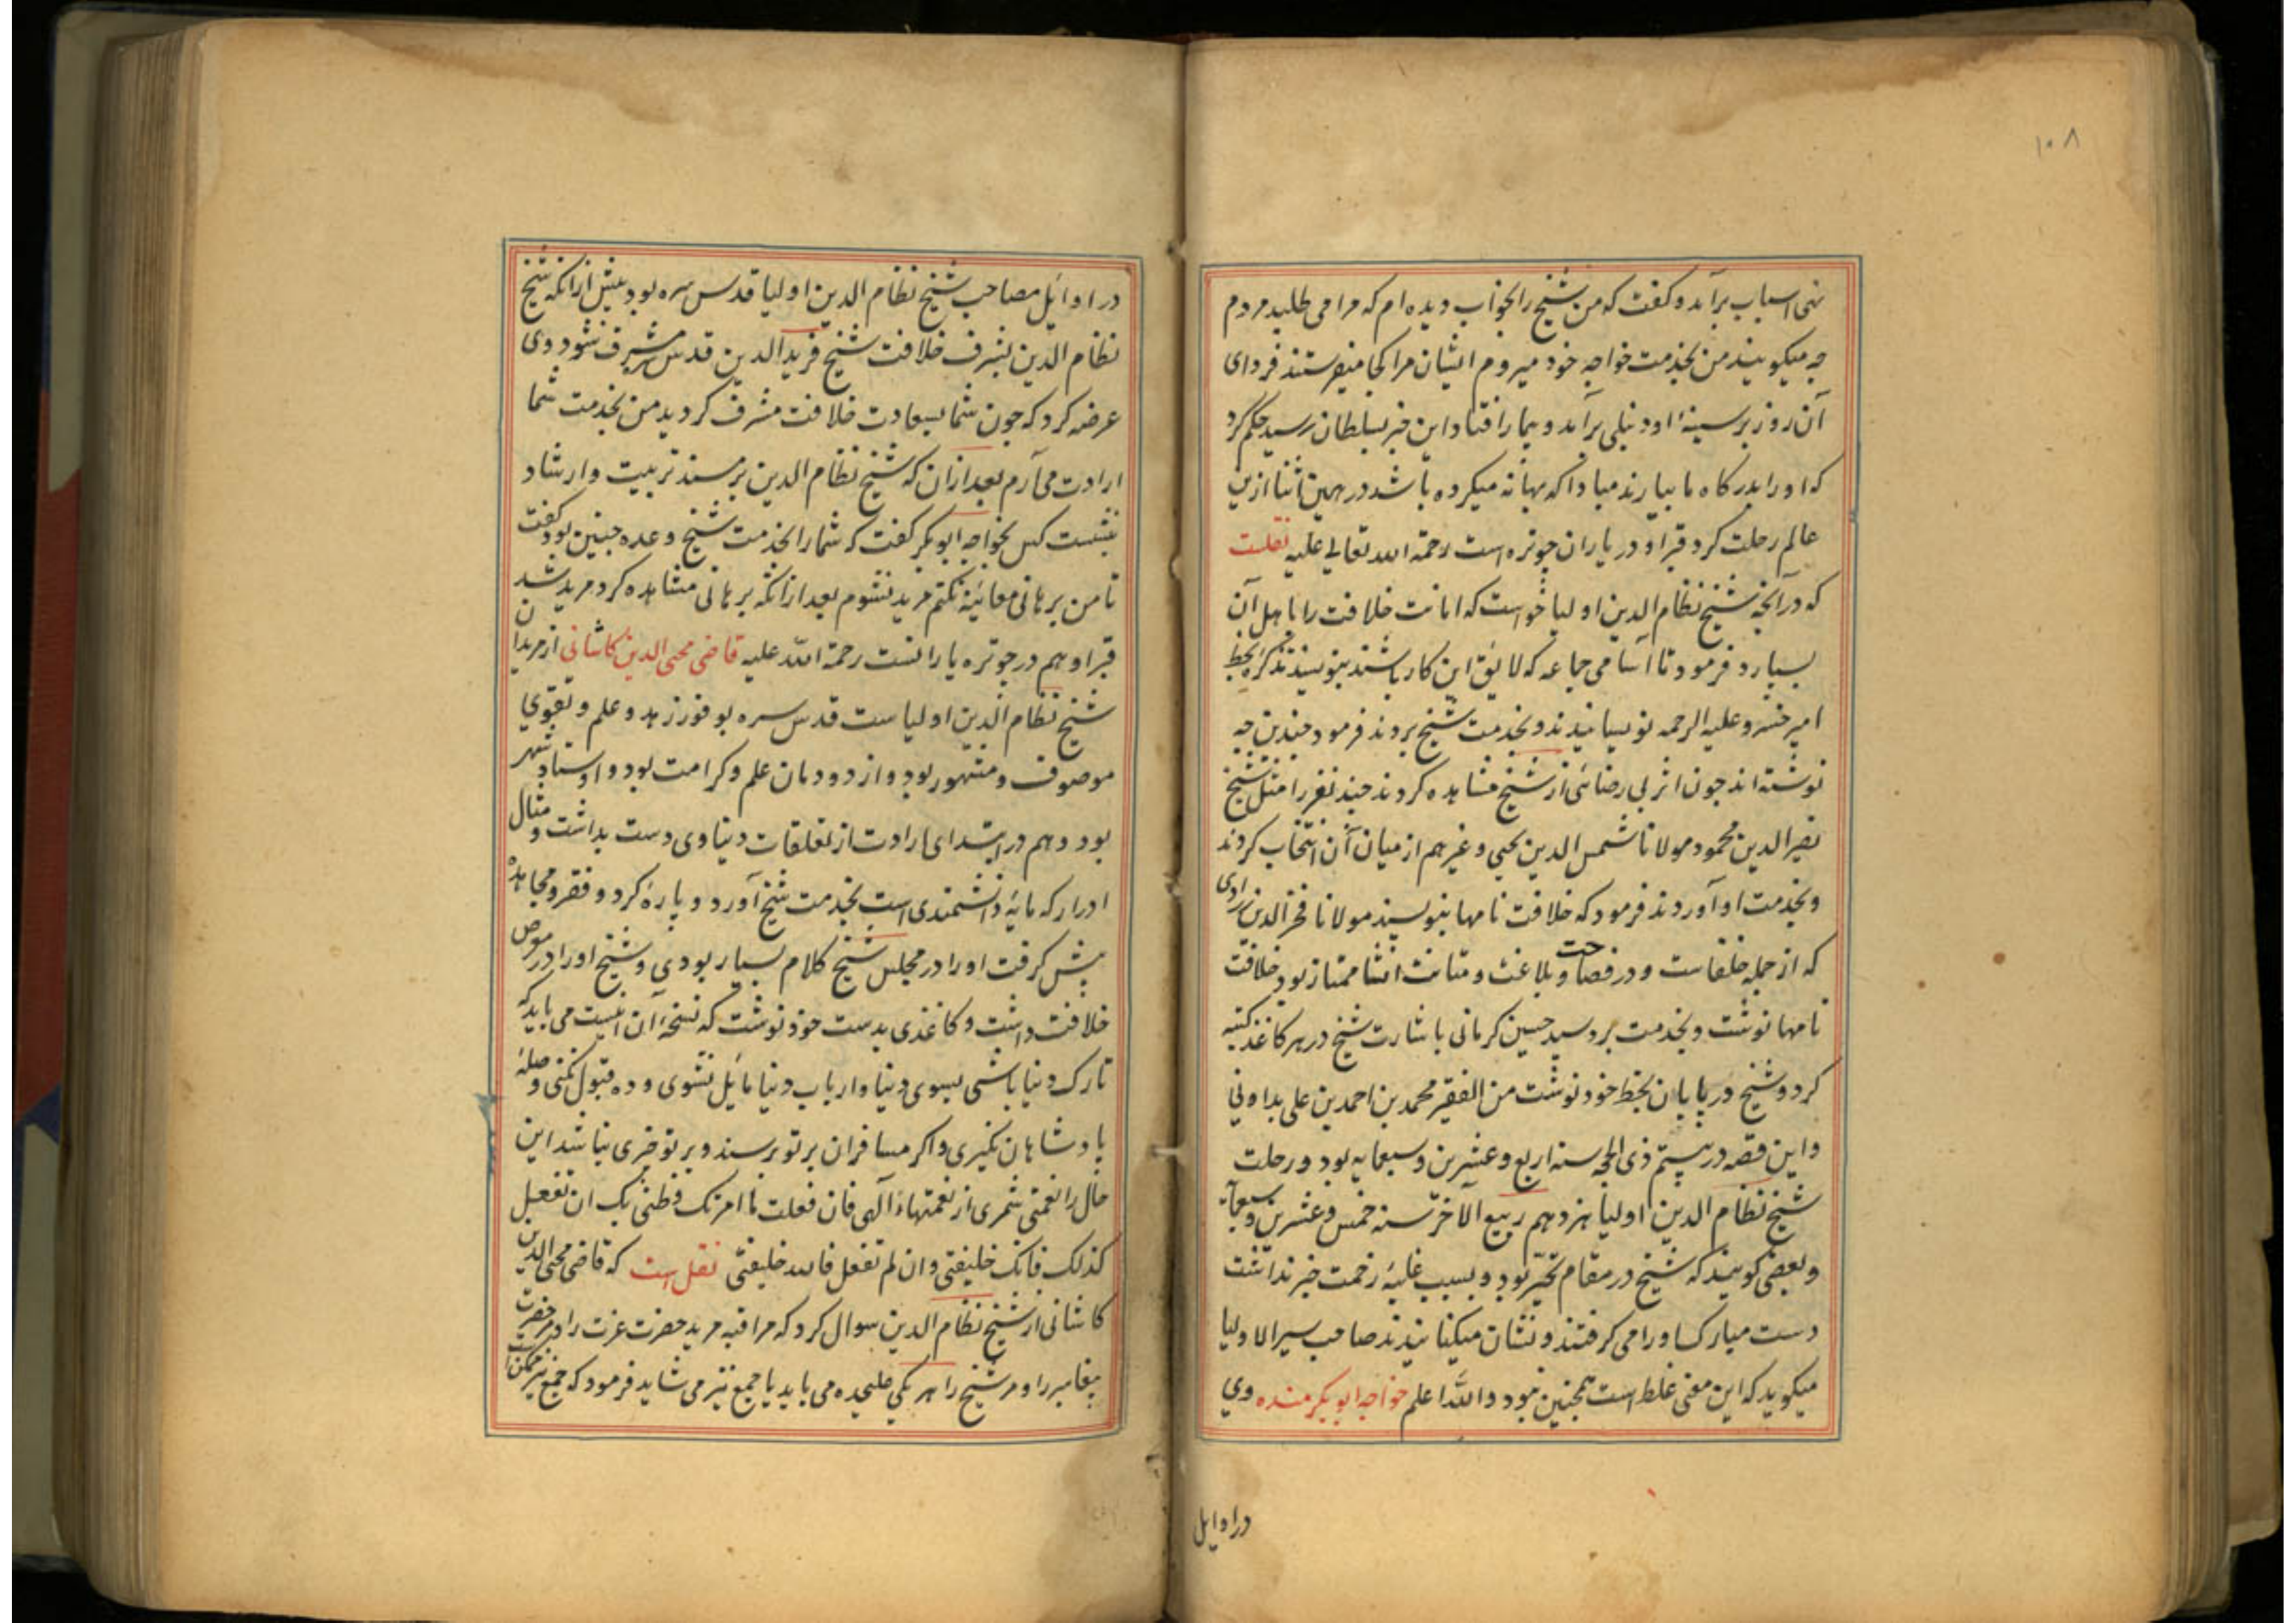 ۱۰۸
اسباب برآمد و کفت که من شیخ را بخواب دیده ام که مرا می طلبد مردم
چه میکویند من بخدمت خواجه خود میروم ایشان مرا کجا میفرستند فردای
آن روز بر سینهٔ او دنبلی برآمد و بیمار افتاد این خبر بسلطان رسید حکم کرد
که او را بدرکاه ما بیارند مبادا که بهانه میکرده باشد در همین اثنا ازین
عالم رحلت کرد قبر او در یاران چوتره است رحمة الله تعالی علیه نقلست
که در آنچه شیخ نظام الدین اولیا خواست که امانت خلافت را باهل آن
بسپارد فرمود تا اسامی جماعه که لایق این کار باشند بنویسند تذکره بخط
امیر خسرو علیه الرحمه نویسانیدند و بخدمت شیخ بردند فرمود چندین چه
نوشته اند چون اثر بی رضائی از شیخ مشاهده کردند چند نفر را مثل شیخ
نصیر الدین محمود مولانا شمس الدین یحیی و غیرهم از میان آن انتخاب کردند
و بخدمت او آوردند فرمود که خلافت نامها بنویسند مولانا فخر الدین زرادی
که از جمله خلفاست و در فصاحت و بلاغت و متانت انشا ممتاز بود خلافت
نامها نوشت و بخدمت برد سید حسین کرمانی باشارت شیخ در هر کاغذ کتبه
کرد و شیخ در پایان بخط خود نوشت من الفقیر محمد بن احمد بن علی بداونی
و این قصه در بیستم ذی الحجه سنه اربع و عشرین و سبعمایه بود و رحلت
شیخ نظام الدین اولیا هزدهم ربیع الآخر سنه خمس و عشرین و سبعمایه
و بعضی کویند که شیخ در مقام تحیر بود و بسبب غلبهٔ زحمت خبر نداشت
دست مبارکس او را می کرفتند و نشان میکنانیدند صاحب سیر الاولیا
میکوید که این معنی غلط است همچنین نبود والله اعلم خواجه ابوبکر منده وی
در اوایل
در اوائل مصاحب شیخ نظام الدین اولیا قدس سره بود پیش ازانکه شیخ
نظام الدین بشرف خلافت شیخ فرید الدین قدس سره مشرف شود وی
عرضه کرد که چون شما بسعادت خلافت مشرف کردید من بخدمت شما
ارادت می آرم بعد ازان که شیخ نظام الدین بر مسند تربیت و ارشاد
نشست کس بخواجه ابوبکر کفت که شما را بخدمت شیخ وعده چنین بود کفت
تا من برهانی معائنه نکنم مرید نشوم بعد ازانکه برهانی مشاهده کرد مرید شد
قبر او هم در چوتره یارانست رحمة الله علیه قاضی محیی الدین کاشانی از مریدان
شیخ نظام الدین اولیاست قدس سره بوفور زهد و علم و تقوی
موصوف و مشهور بود و از دودمان علم و کرامت بود و اوستاد شهر
بود و هم در ابتدای ارادت از تعلقات دنیاوی دست بداشت و مثال
ادرار که مایهٔ دانشمندی است بخدمت شیخ آورد و پاره کرد و فقر و مجاهده
پیش کرفت او را در مجلس شیخ کلام بسیار بودی و شیخ او را در معرض
خلافت داشت و کاغذی بدست خود نوشت که نسخهٔ آن اینست می باید که
تارک دنیا باشی بسوی دنیا و ارباب دنیا مایل نشوی و ده قبول نکنی و صلهٔ
پادشاهان نکیری و اکر مسافران بر تو برسند و بر تو چیزی نباشد این
حال را نعمتی شمری از نعمتهاء الهی فان فعلت ما امرتک و ظنی بک ان تفعل
کذلک فانک خلیفتی و ان لم تفعل فالله خلیفتی نقل است که قاضی محیی الدین
کاشانی از شیخ نظام الدین سوال کرد که مراقبه مرید حضرت عزت را و مر حضرت
پیغامبر را و مر شیخ را هر یکی علیحده می باید یا جمع نیز می شاید فرمود که جمع نیز ممکن است